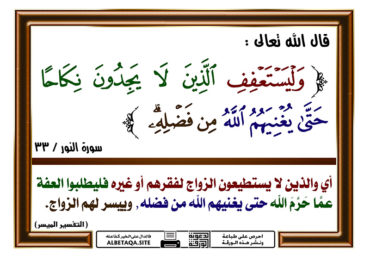 قال الله تعالى :
﴿ وَلْيَسْتَعْفِفِ ٱلَّذِينَ لَا يَجِدُونَ نِكَاحًا
حَتَّىٰ يُغْنِيَهُمُ ٱللَّهُ مِن فَضْلِهِۦ ﴾
سورة النور / ٣٣
أي والذين لا يستطيعون الزواج لفقرهم أو غيره فليطلبوا العفة
عمَّا حَرَّمَ الله حتى يغنيهم الله من فضله , وييسر لهم الزواج.
( التفسير الميسر )
احرص على طباعة
ونشر هذه الورقة
ALBETAQA.SITE